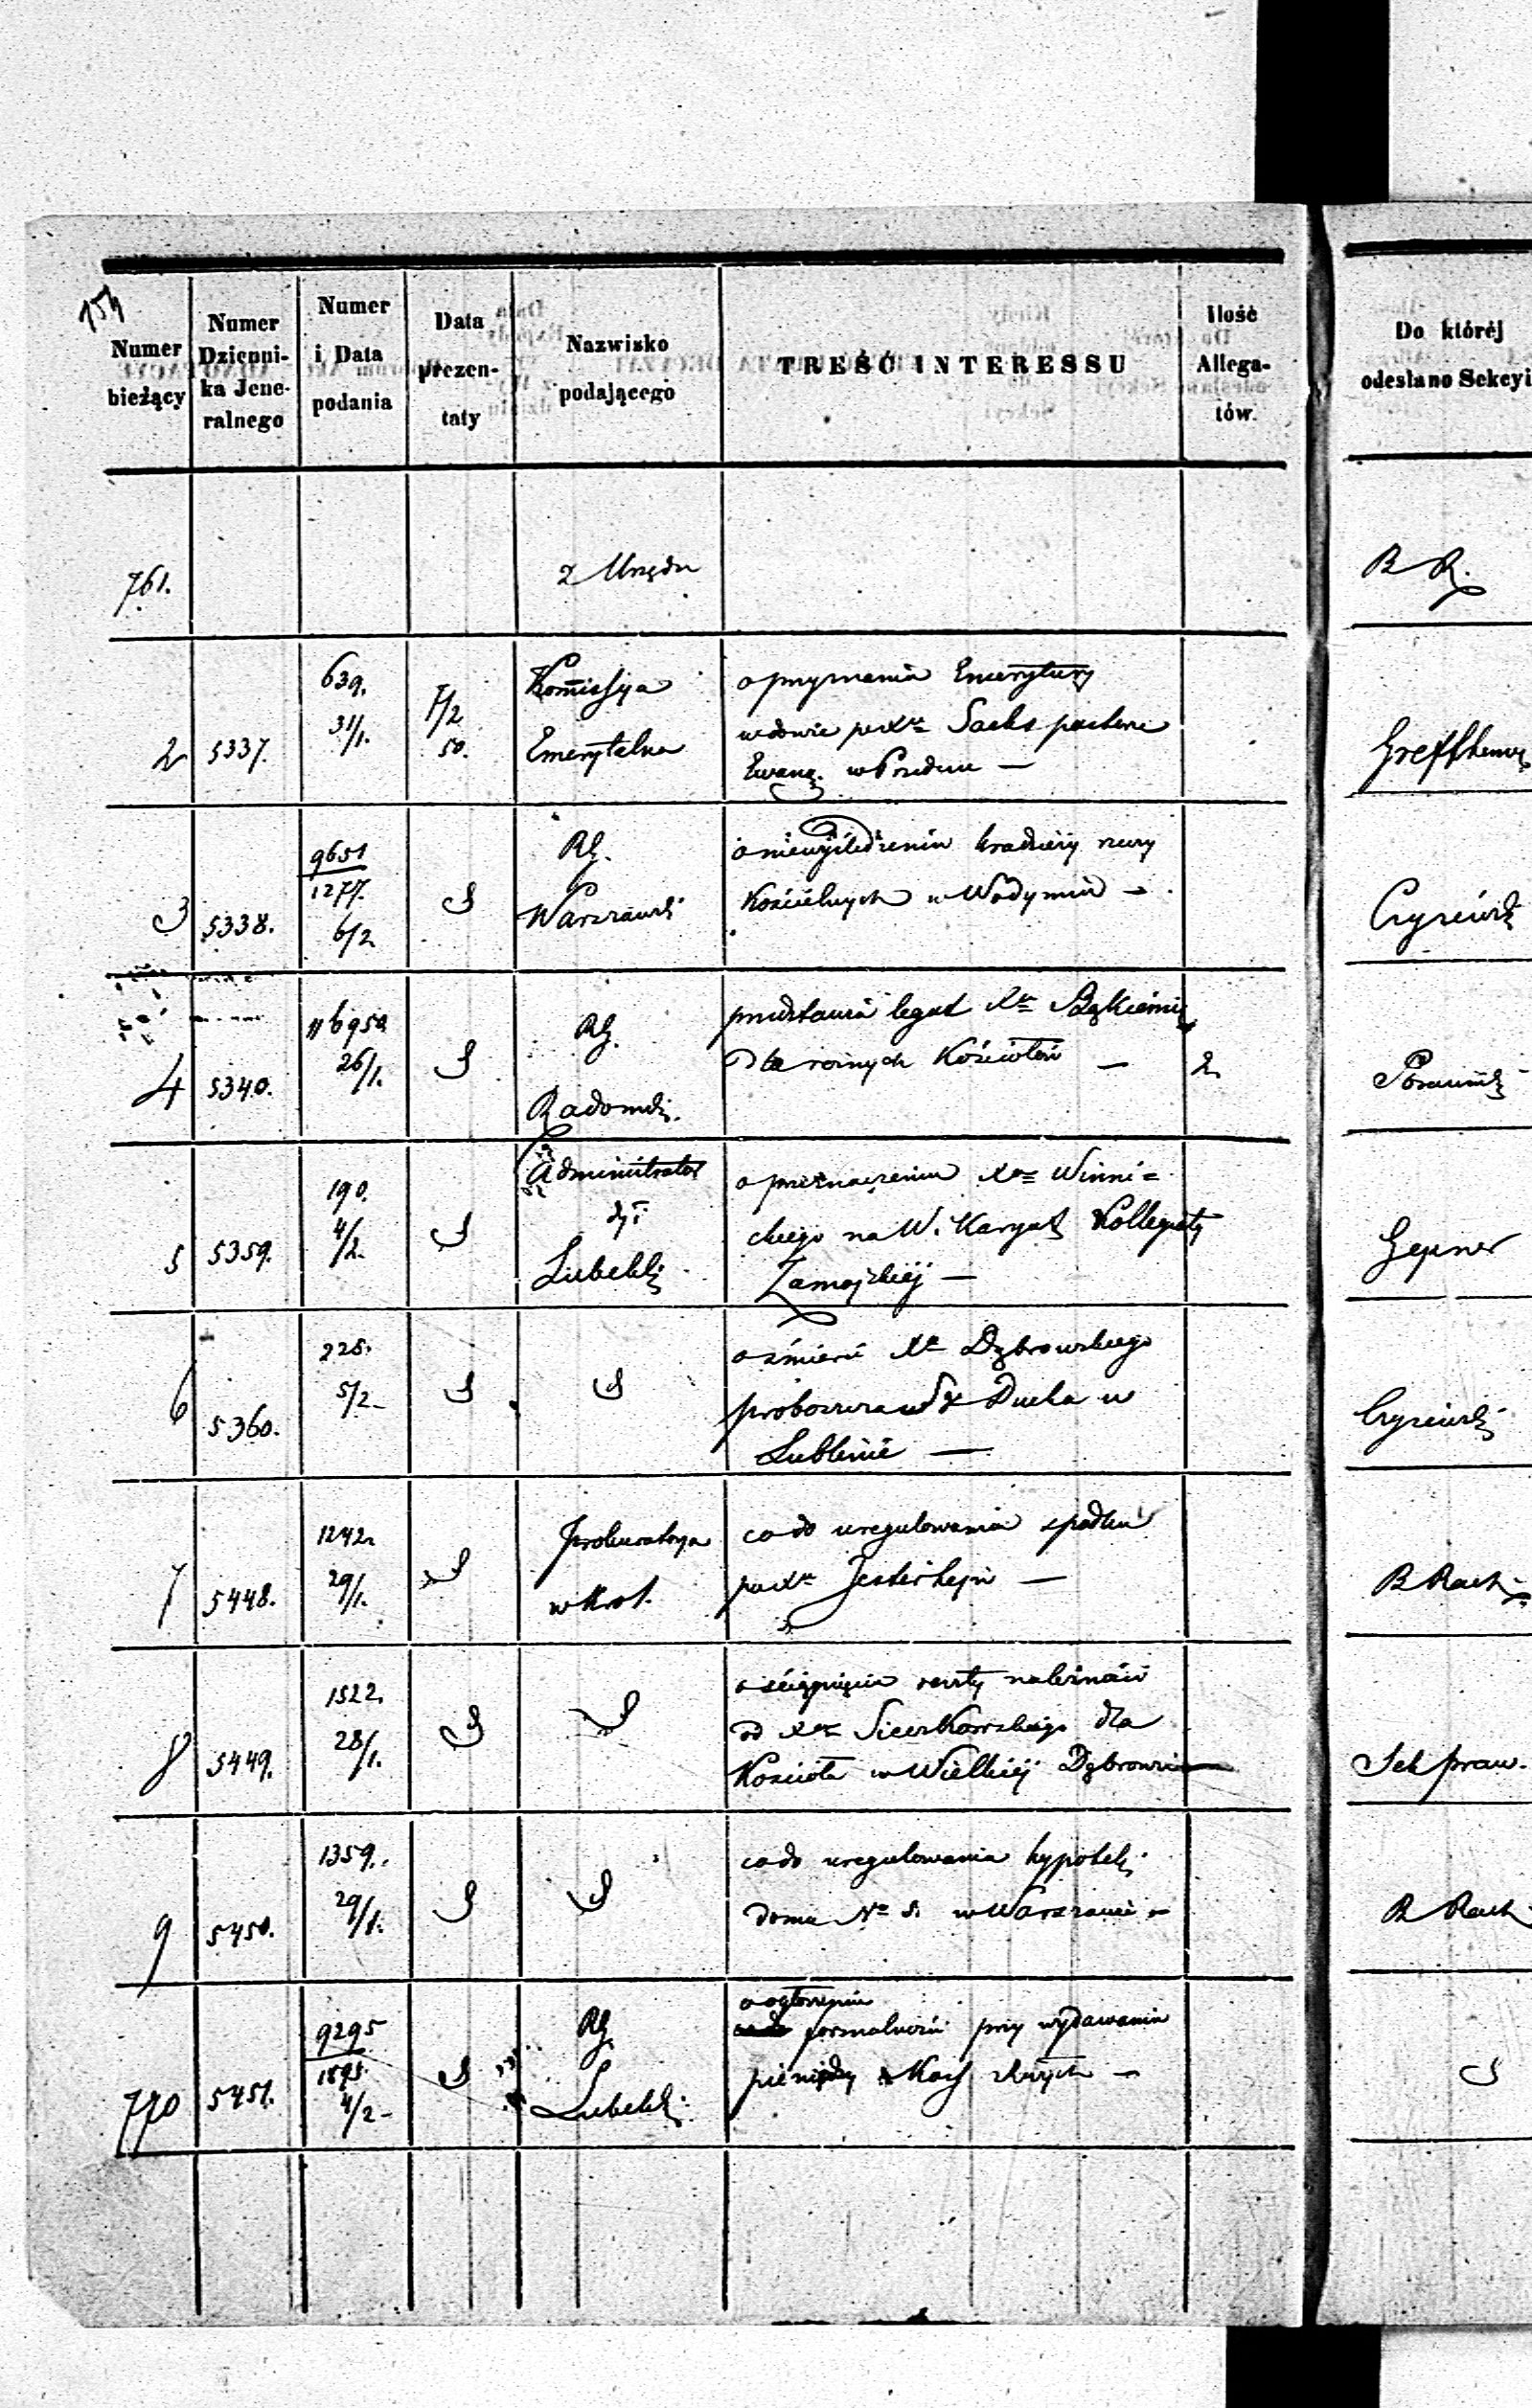 154
Numer
bieżący
Numer
Dzienni-
ka Jene-
ralnego
Numer
i Data
podania
Data
prezen-
taty
Nazwisko
podającego
TREŚĆ INTERESSU
Ilość
Allega-
tów.
Do której
odesłano Sekcyi
761.
z Urzędu
B R.
2
5337.
639.
31/1.
7/2
50.
Kommissya
Emerytalna
o przyznania Emerytury
wdowie po Xu Sachs pastorze
Ewang. w
3
5338.
9651
1277.
6/2
RG.
Warszawski
o niewyśledzeniu kradzieży rzeczy
Kościelnych w Wodyniu
4
5340.
116950
26/1.
RG.
Radomski.
przedstawia legat Xa
dla różnych Kościołów —
2
5
5359.
190.
4/2.
Administrator
dyi
Lubelskiej
o przeznaczeniu Xa Winni=
ckiego na W. Kollegiaty
Zamojskiej —
Gepner
6
5360.
225.
5/2
o śmierci Xa Dąbrowskiego
proboszcza Sgo Ducha w
Lublinie —
7
5448.
1242.
29/1.
Prokuratorya
w Krol.
co do uregulowania spadku
po Xu —
B Rach
8
5449.
1522.
28/1.
o ściągnięcie reszty należności
od Xa dla
Kościoła w Wielkiéj Dąbrowie
Sek praw.
9
5450.
1359.
29/1.
co do uregulowania hypoteki
domu No 5. w Warszawie
B Rach
770
5451.
9295
1895.
4/2
RG
Lubelski
o ogłoszeniu
formalności przy wydawaniu
pieniędzy z Kass